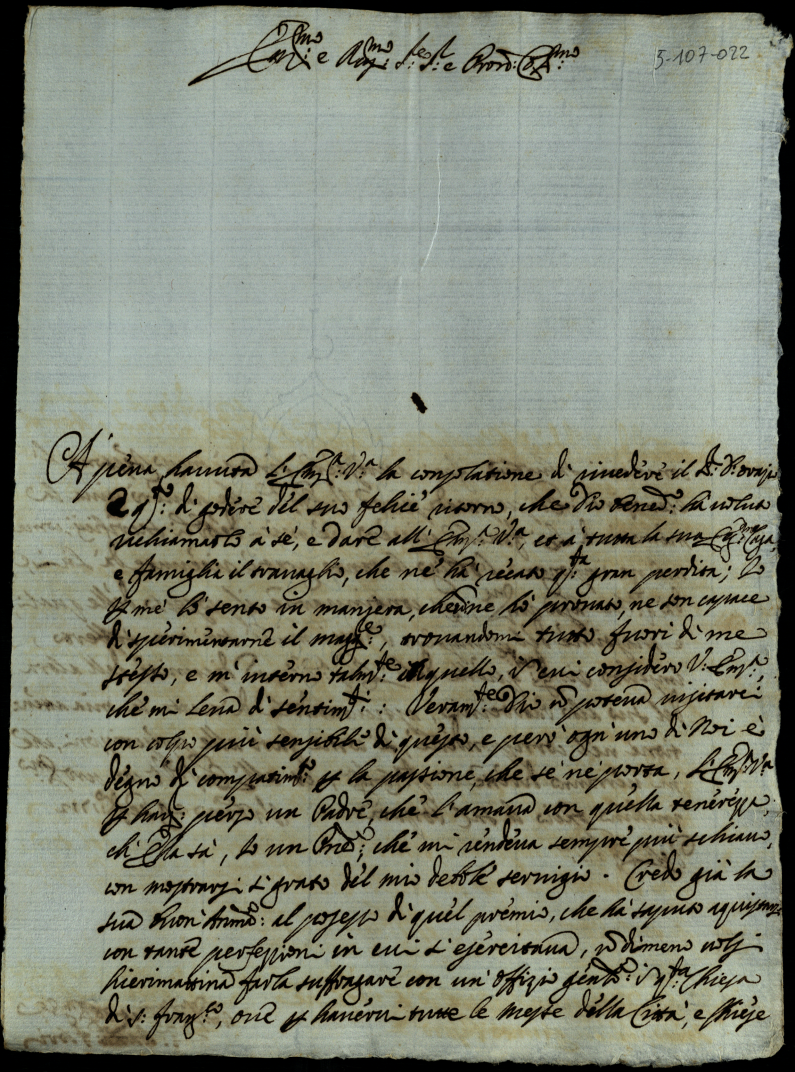 Em:mo e Rev:mo S:re S:r e Pron: Col:mo
5-107-022
A pena havuta l'Em:a V:a la consolatione di rivedere il S:r
e di godere del suo felice ritorno, che Dio bened: ha voluto
richiamarlo à sé, e dare all'Em:a V:a, et à tutta la sua Ecc:ma Casa,
e famiglia il travaglio, che ne hà recato q:ta gran perdita; Io
p me lo sento in maniera, che ne hò provato, ne son capace
di sperimentarne il magg:re, trovandomi tutto fuori di me
stesso, e m'interno talm:te in quello, in cui considero V: Em:a,
che mi leva di sentim:ti: Veram:te Dio nõ poteva visitarci
con colpo più sensibile di questo, e però ogn'uno di Noi è
degno di compatim:to p la passione, che se ne porta, l'Em:a V:a
p haver perso un Padre, che l'amava con quella tenerezza,
ch'Ella sà, Io un Pne, che mi rendeva sempre più schiavo,
con mostrarsi sì grato del mio debole servigio. Credo già la
sua buon'Anima al possesso di quel premio, che hà saputo aquistarsi
con tante perfezzioni in cui s'esercitava, nõdimeno volsi
hiermattina farla suffragare con un'offizio gen:le in q:ta Chiesa
di S: Fran:co, ove p havervi tutte le messe della Città, e Chiese